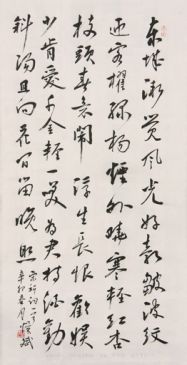 东城渐觉风光好縠皱波纹
迎客棹绿杨烟外晓寒轻红杏
枝头春意闹浮生长恨欢娱
少肯爱千金轻一笑为君持酒劝
斜阳且向花间留晚照
宋祁词一首
辛卯春月